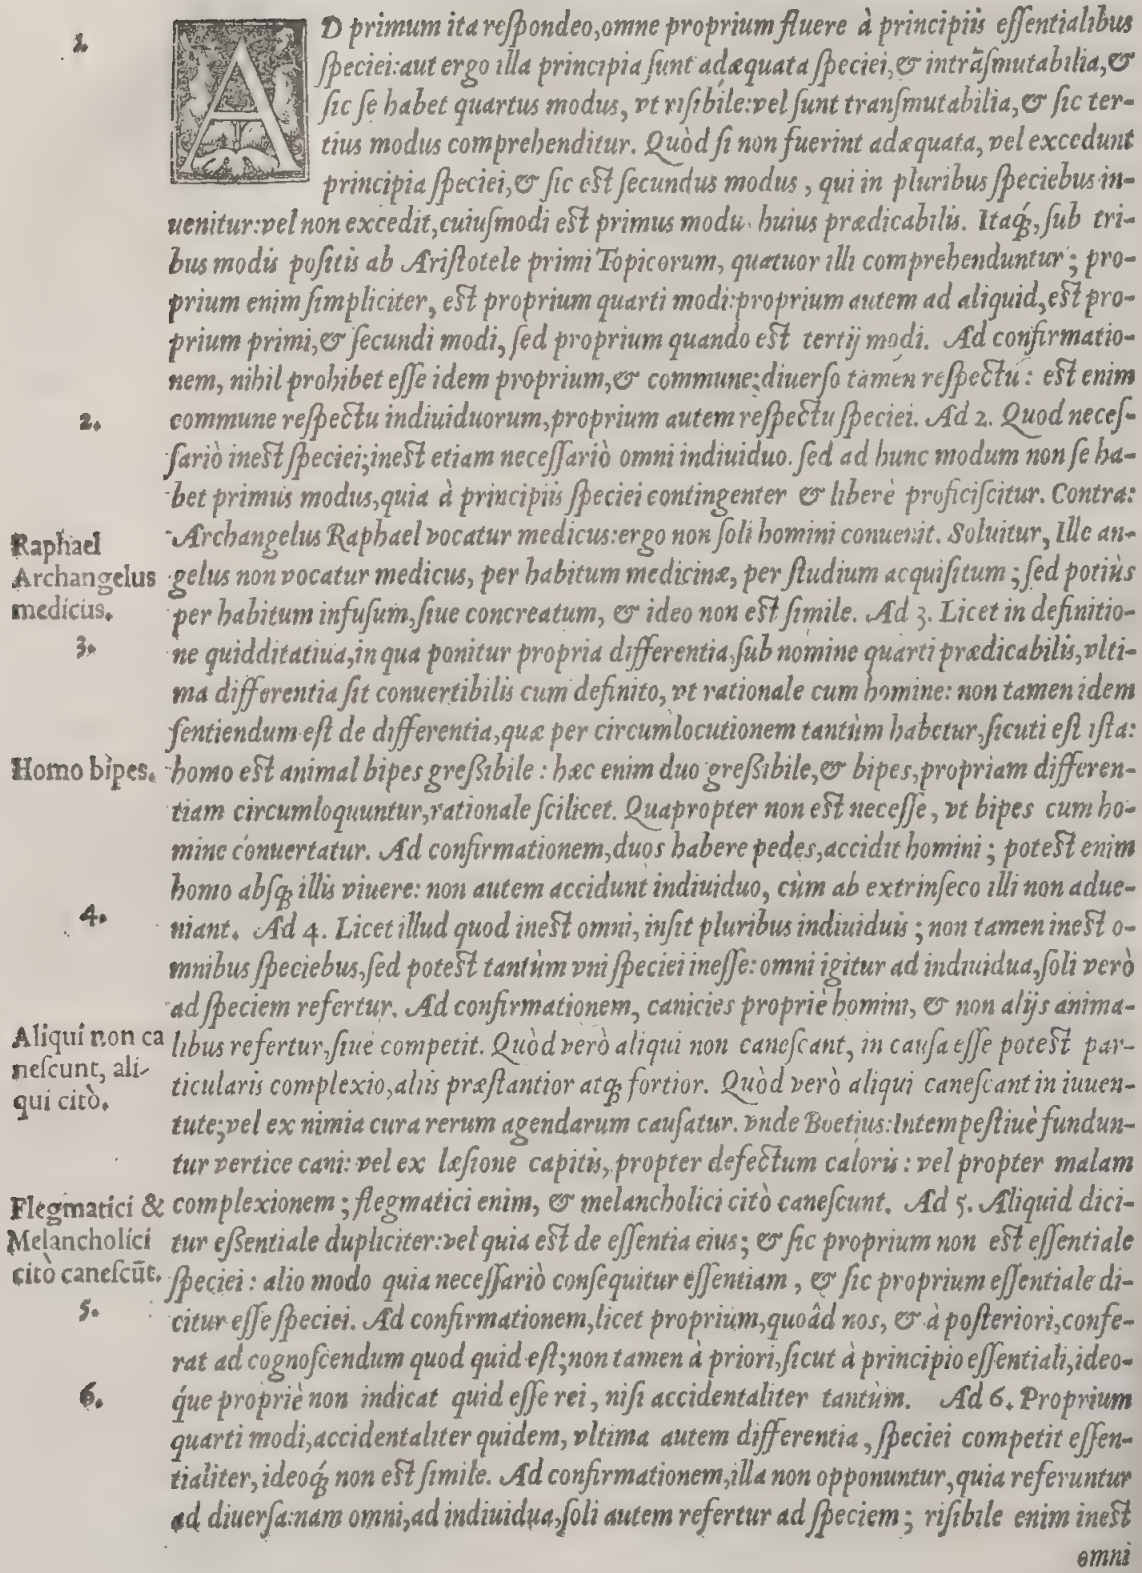 1.
AD primum ita reſpondeo, omne proprium fluere à principiis eſſentialibus
ſpeciei: aut ergo illa principia ſunt adæquata ſpeciei, & intrãſmutabilia, &
ſic ſe habet quartus modus, vt riſibile: vel ſunt tranſmutabilia, & ſic ter-
tius modus comprehenditur. Quòd ſi non fuerint adæquata, vel excedunt
principia ſpeciei, & ſic eſt ſecundus modus, qui in pluribus ſpeciebus in-
uenitur: vel non excedit, cuiuſmodi eſt primus modu huius prædicabilis. Itaq́;, ſub tri-
bus modis poſitis ab Ariſtotele primi Topicorum, quatuor illi comprehenduntur; pro-
prium enim ſimpliciter, eſt proprium quarti modi: proprium autem ad aliquid, eſt pro-
prium primi, & ſecundi modi, ſed proprium quando eſt tertij modi. Ad confirmatio-
nem, nihil prohibet eſſe idem proprium, & commune; diuerſo tamen reſpectu: eſt enim
2.
commune reſpectu indiuiduorum, proprium autem reſpectu ſpeciei. Ad 2. Quod neceſ-
ſariò ineſt ſpeciei; ineſt etiam neceſſariò omni indiuiduo. ſed ad hunc modum non ſe ha-
bet primus modus, quia à principiis ſpeciei contingenter & liberè proficiſcitur. Contra:
Raphael
Archangelus
medicus.
Archangelus Raphael vocatur medicus: ergo non ſoli homini conuenit. Soluitur, Ille an-
gelus non vocatur medicus, per habitum medicinæ, per ſtudium acquiſitum; ſed potiùs
per habitum infuſum, ſiue concreatum, & ideo non eſt ſimile. Ad 3. Licet in definitio-
3.
ne quidditatiua, in qua ponitur propria differentia, ſub nomine quarti prædicabilis, vlti-
ma differentia ſit conuertibilis cum definito, vt rationale cum homine: non tamen idem
ſentiendum eſt de differentia, quæ per circumlocutionem tantùm habetur, ſicuti eſt iſta:
Homo bipes.
homo eſt animal bipes greſsibile: hæc enim duo greſsibile, & bipes, propriam differen-
tiam circumloquuntur, rationale ſcilicet. Quapropter non eſt neceſſe, vt bipes cum ho-
mine conuertatur. Ad confirmationem, duos habere pedes, accidit homini; poteſt enim
homo abſq; illis viuere: non autem accidunt indiuiduo, cùm ab extrinſeco illi non adue-
4.
niant. Ad 4. Licet illud quod ineſt omni, inſit pluribus indiuiduis; non tamen ineſt o-
mnibus ſpeciebus, ſed poteſt tantùm vni ſpeciei ineſſe: omni igitur ad indiuidua, ſoli verò
ad ſpeciem refertur. Ad confirmationem, canicies propriè homini, & non alijs anima-
Aliqui non ca
neſcunt, ali-
qui citò.
libus refertur, ſiue competit. Quòd verò aliqui non caneſcant, in cauſa eſſe poteſt par-
ticularis complexio, aliis præſtantior atq; fortior. Quòd verò aliqui caneſcant in iuuen-
tute; vel ex nimia cura rerum agendarum cauſatur. vnde Boetius: Intempeſtiuè fundun-
tur vertice cani: vel ex læſione capitis, propter defectum caloris: vel propter malam
Flegmatici &
Melancholici
citò caneſcũt.
complexionem; flegmatici enim, & melancholici citò caneſcunt. Ad 5. Aliquid dici-
tur eſsentiale dupliciter: vel quia eſt de eſſentia eius; & ſic proprium non eſt eſſentiale
ſpeciei: alio modo quia neceſſariò conſequitur eſſentiam, & ſic proprium eſſentiale di-
5.
citur eſſe ſpeciei. Ad confirmationem, licet proprium, quoâd nos, & à poſteriori, confe-
rat ad cognoſcendum quod quid eſt; non tamen à priori, ſicut à principio eſſentiali, ideo-
6.
q́ue propriè non indicat quid eſſe rei, niſi accidentaliter tantùm. Ad 6. Proprium
quarti modi, accidentaliter quidem, vltima autem differentia, ſpeciei competit eſſen-
tialiter, ideoq́; non eſt ſimile. Ad confirmationem, illa non opponuntur, quia referuntur
ad diuerſa: nam omni, ad indiuidua, ſoli autem refertur ad ſpeciem; riſibile enim ineſt
omni